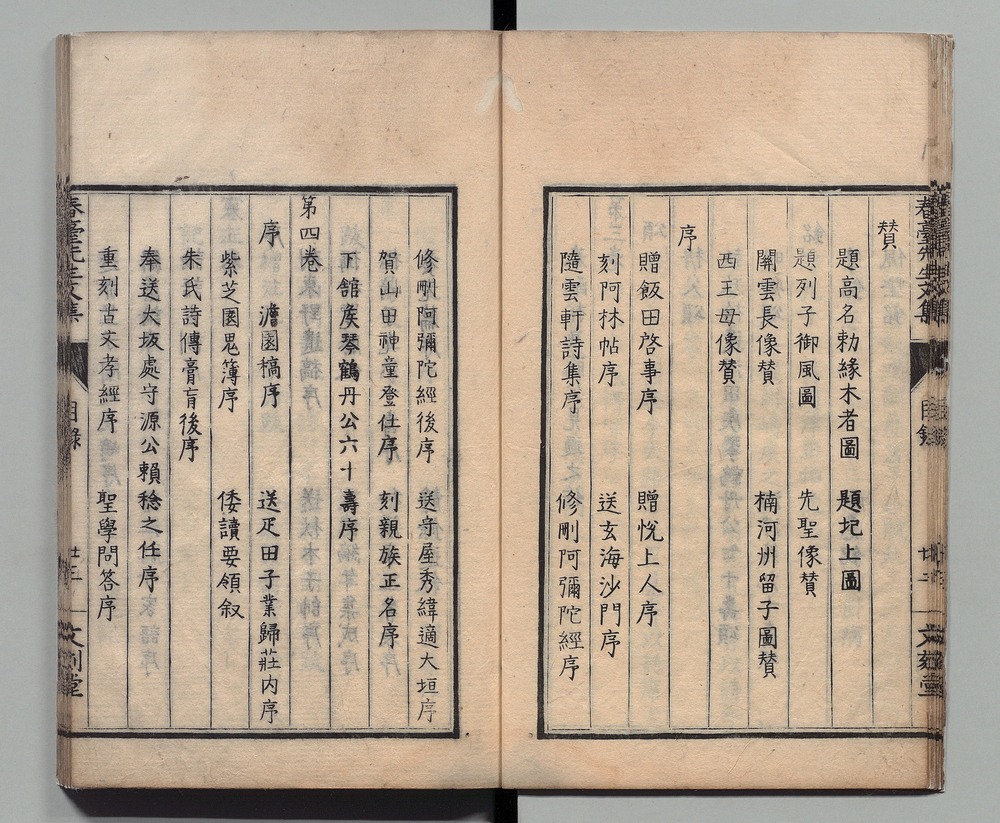 贊
題高名勅緣木者圖　題圯上圖
題列子御風圖　先聖像贊
關雲長像贊　楠河洲留子圖贊
西王母像贊
序
贈飯田啓事序　贈悅上人序
刻阿林帖序　送玄海沙門序
隨雲軒詩集序　修剛阿彌陀經序
修刪阿彌陀經後序　送守屋秀緯適大垣序
賀山田神童登仕序　刻親族正名序
下館矦琴鶴丹公六十壽序
第四卷
序　澹園稿序　送疋田子業歸莊內序
紫芝園思簿序　倭讀要領叙
朱氏詩傳膏肓後序
奉送大坂處守源公賴稔之任序
重刻古文孝經序　聖學問答序
春臺先生文集　目錄